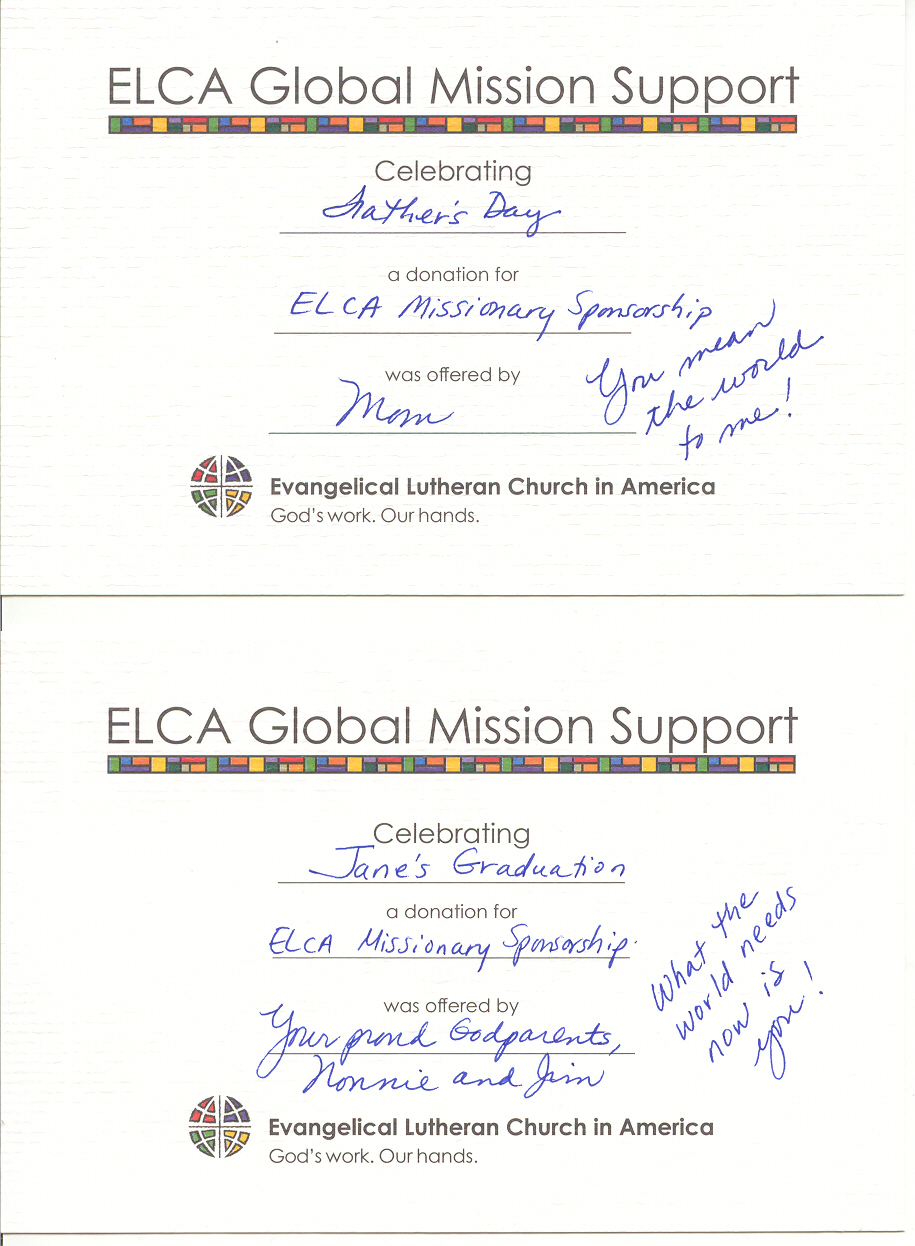 ELCA Global Mission Support
Celebrating
Father's Day
a donation for
ELCA Missionary Sponsorship
was offered by
Mom
You mean
the world
to me!
Evangelical Lutheran Church in America
God's work. Our hands.
ELCA Global Mission Support
Celebrating
Jane's Graduation
a donation for
ELCA Missionary Sponsorship.
was offered by
Your proud Godparents,
Nonnie and Jim
What the
world needs
now is
you!
Evangelical Lutheran Church in America
God's work. Our hands.